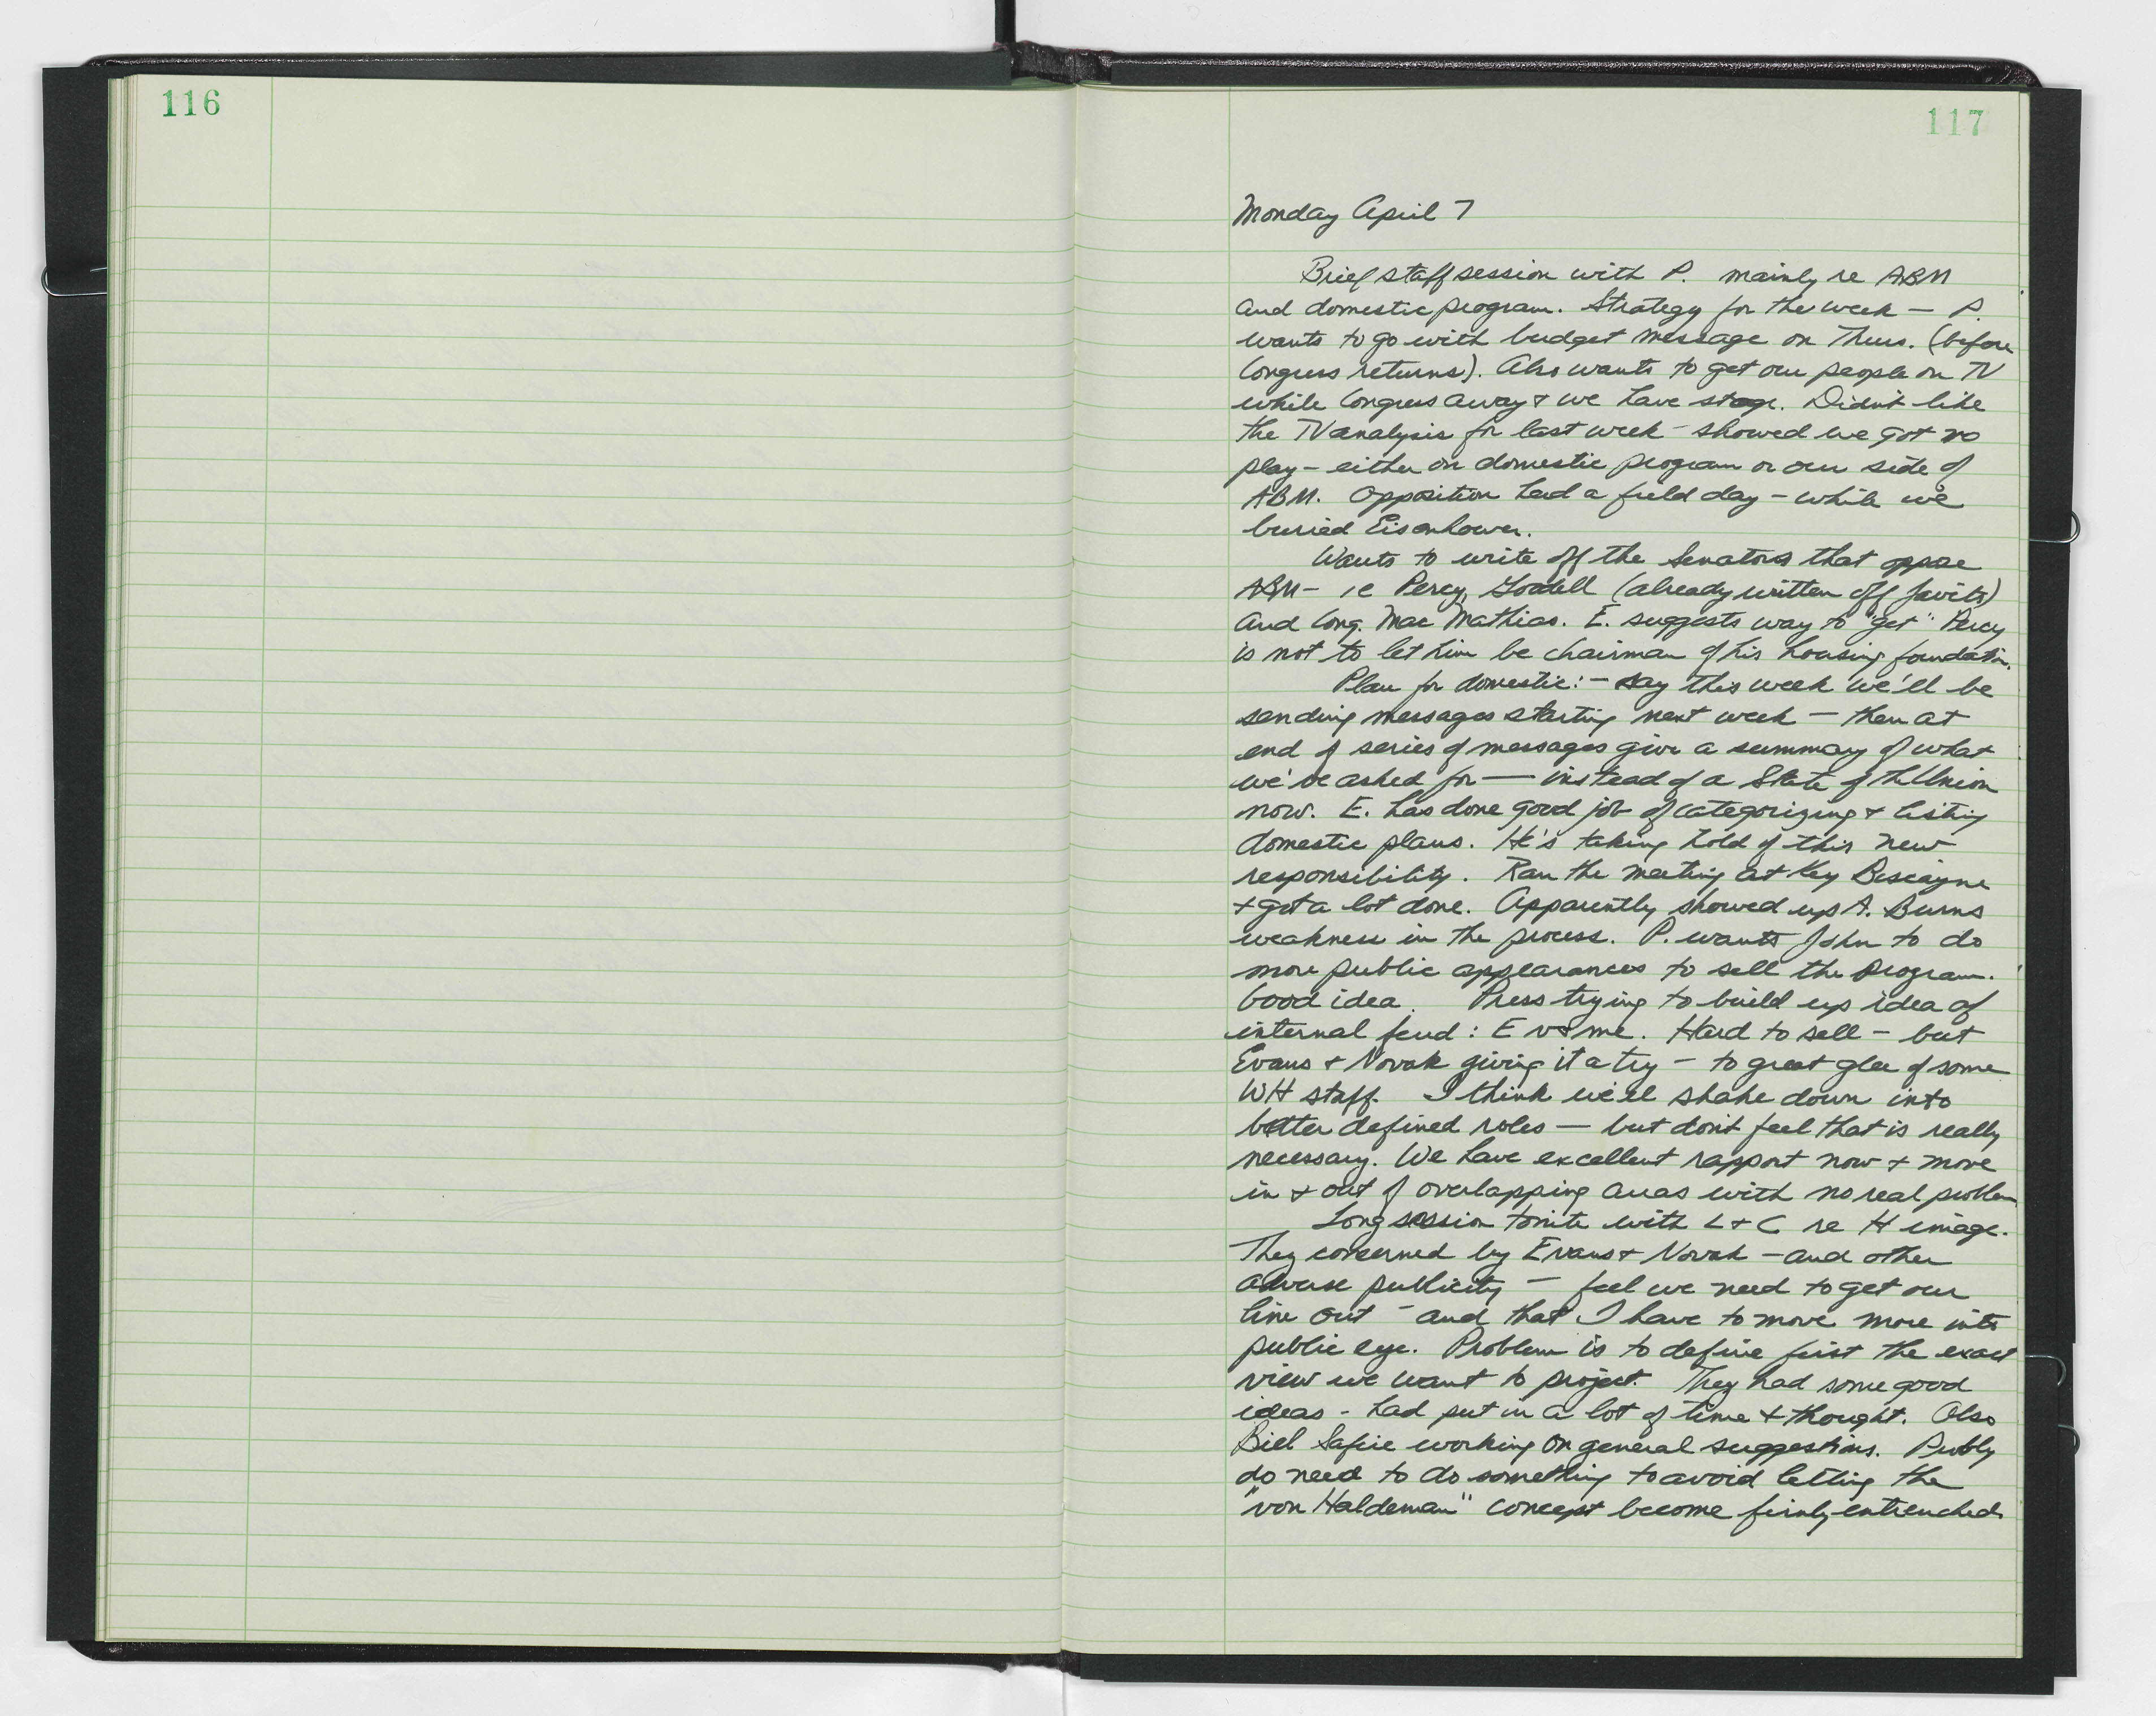 116
117
Monday April 7
Brief staff session with P. mainly re ABM
and domestic program. Strategy for the week — P.
wants to go with budget message on Thurs. (before
Congress returns). Also wants to get our people on TV
while Congress away & we have stage. Didn't like
the TV analysis for last week - showed we got no
play - either on domestic program or our side of
ABM. Opposition had a field day - while we
buried Eisenhower.
Wants to write off the Senators that oppose
ABM - ie Percy, Goodell (already written off Javits)
and Cong. Mac Mathias. E. suggests way to "get" Percy
is not to let him be chairman of his housing foundation.
Plan for domestic: - say this week we'll be
sending messages starting next week — then at
end of series of messages give a summary of what
we've asked for — instead of a State of the Union
now. E. has done good job of categorizing & listing
domestic plans. He's taking hold of this new
responsibility. Ran the meeting at Key Biscayne
& got a lot done. Apparently showed up A. Burns
weakness in the process. P. wants John to do
more public appearances to sell the program.
Good idea. Press trying to build up idea of
internal feud: E vs me. Hard to sell - but
Evans & Novak giving it a try - to great glee of some
WH staff. I think we'll shake down into
better defined roles — but don't feel that is really
necessary. We have excellent rapport now & move
in & out of overlapping areas with no real problem
Long session tonite with L & C re H image.
They concerned by Evans & Novak - and other
adverse publicity - feel we need to get our
line out - and that I have to move more into
public eye. Problem is to define first the exact
view we want to project. They had some good
ideas - had put in a lot of time & thought. Also
Bill Safire working on general suggestions. Probly
do need to do something to avoid letting the
"von Haldeman" concept become firmly entrenched.